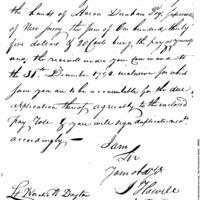 the hands of Aaron Dunham Esq.
of New Jersey the sum of One hundred thirty
five dollars & 20 Cents being the pay of yourself
and the recruits under your Command to
the 31st December 1792 inclusive for which
sum you are to be accountable for the due
application thereof agreeably to the inclosed
Pay Roll & you will sign duplicate receipts
accordingly
I am
Sir
Your obed
J Howell
Dayton